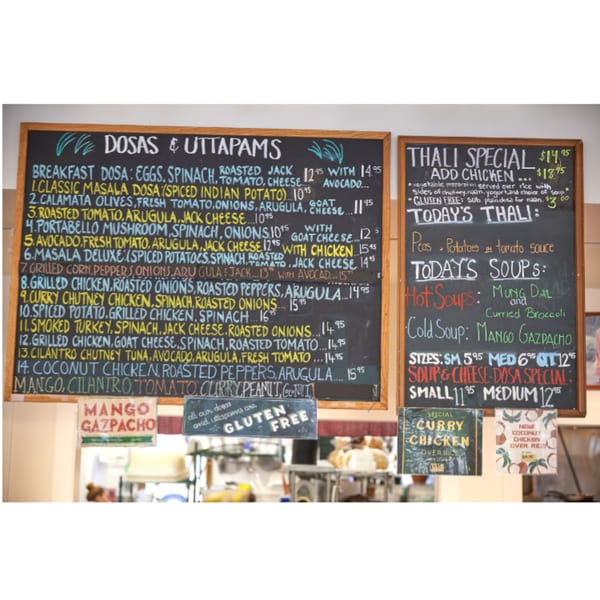 DOSAS & UTTAPAMS
BREAKFAST DOSA: EGGS, SPINACH, ROASTED JACK TOMATO, CHEESE 12.95 WITH AVOCADO... 14.95
1. CLASSIC MASALA DOSA (SPICED INDIAN POTATO) 10.95
2. CALAMATA OLIVES, FRESH TOMATO, ONIONS, ARUGULA, GOAT CHEESE... 11.95
3. ROASTED TOMATO, ARUGULA, JACK CHEESE... 10.95
4. PORTABELLO MUSHROOM, SPINACH, ONIONS 10.95 WITH GOAT CHEESE 12.95
5. AVOCADO, FRESH TOMATO, ARUGULA, JACK CHEESE 12.95 WITH CHICKEN 15.45
6. MASALA DELUXE (SPICED POTATOES, SPINACH, ROASTED TOMATO, JACK CHEESE 14.95
7. GRILLED CORN, PEPPERS, ONIONS, ARUGULA & JACK... WITH AVOCADO...
8. GRILLED CHICKEN, ROASTED ONIONS, ROASTED PEPPERS, ARUGULA... 14.95
9. CURRY CHUTNEY CHICKEN, SPINACH, ROASTED ONIONS... 15.95
10. SPICED POTATO, GRILLED CHICKEN, SPINACH... 16.95
11. SMOKED TURKEY, SPINACH, JACK CHEESE, ROASTED ONIONS... 14.95
12. GRILLED CHICKEN, GOAT CHEESE, SPINACH, ROASTED TOMATO... 14.95
13. CILANTRO CHUTNEY TUNA, AVOCADO, ARUGULA, FRESH TOMATO... 14.95
14. COCONUT CHICKEN, ROASTED PEPPERS, ARUGULA... 15.95
MANGO, CILANTRO, TOMATO, CURRY, PEANUT,
THALI SPECIAL $14.95
ADD CHICKEN... $18.95
vegetable preparation served over rice with
sides of chutney, naan, yogurt, and choice of soup
GLUTEN FREE: sub plain dosa for naan. $3.00
TODAY'S THALI:
Peas & Potatoes in tomato sauce
TODAY'S SOUPS:
Hot Soups: Mung Dal
and
Curried Broccoli
Cold Soup: Mango Gazpacho
SIZES: SM 5.95 MED 6.95 QT 12.95
SOUP & CHEESE-DOSA SPECIAL:
SMALL 11.95 MEDIUM 12.95
MANGO
GAZPACHO
all our dosas
and uttapams are
GLUTEN
FREE
SPECIAL
CURRY
CHICKEN
OVER RICE
NEW!
COCONUT
CHICKEN
OVER RICE